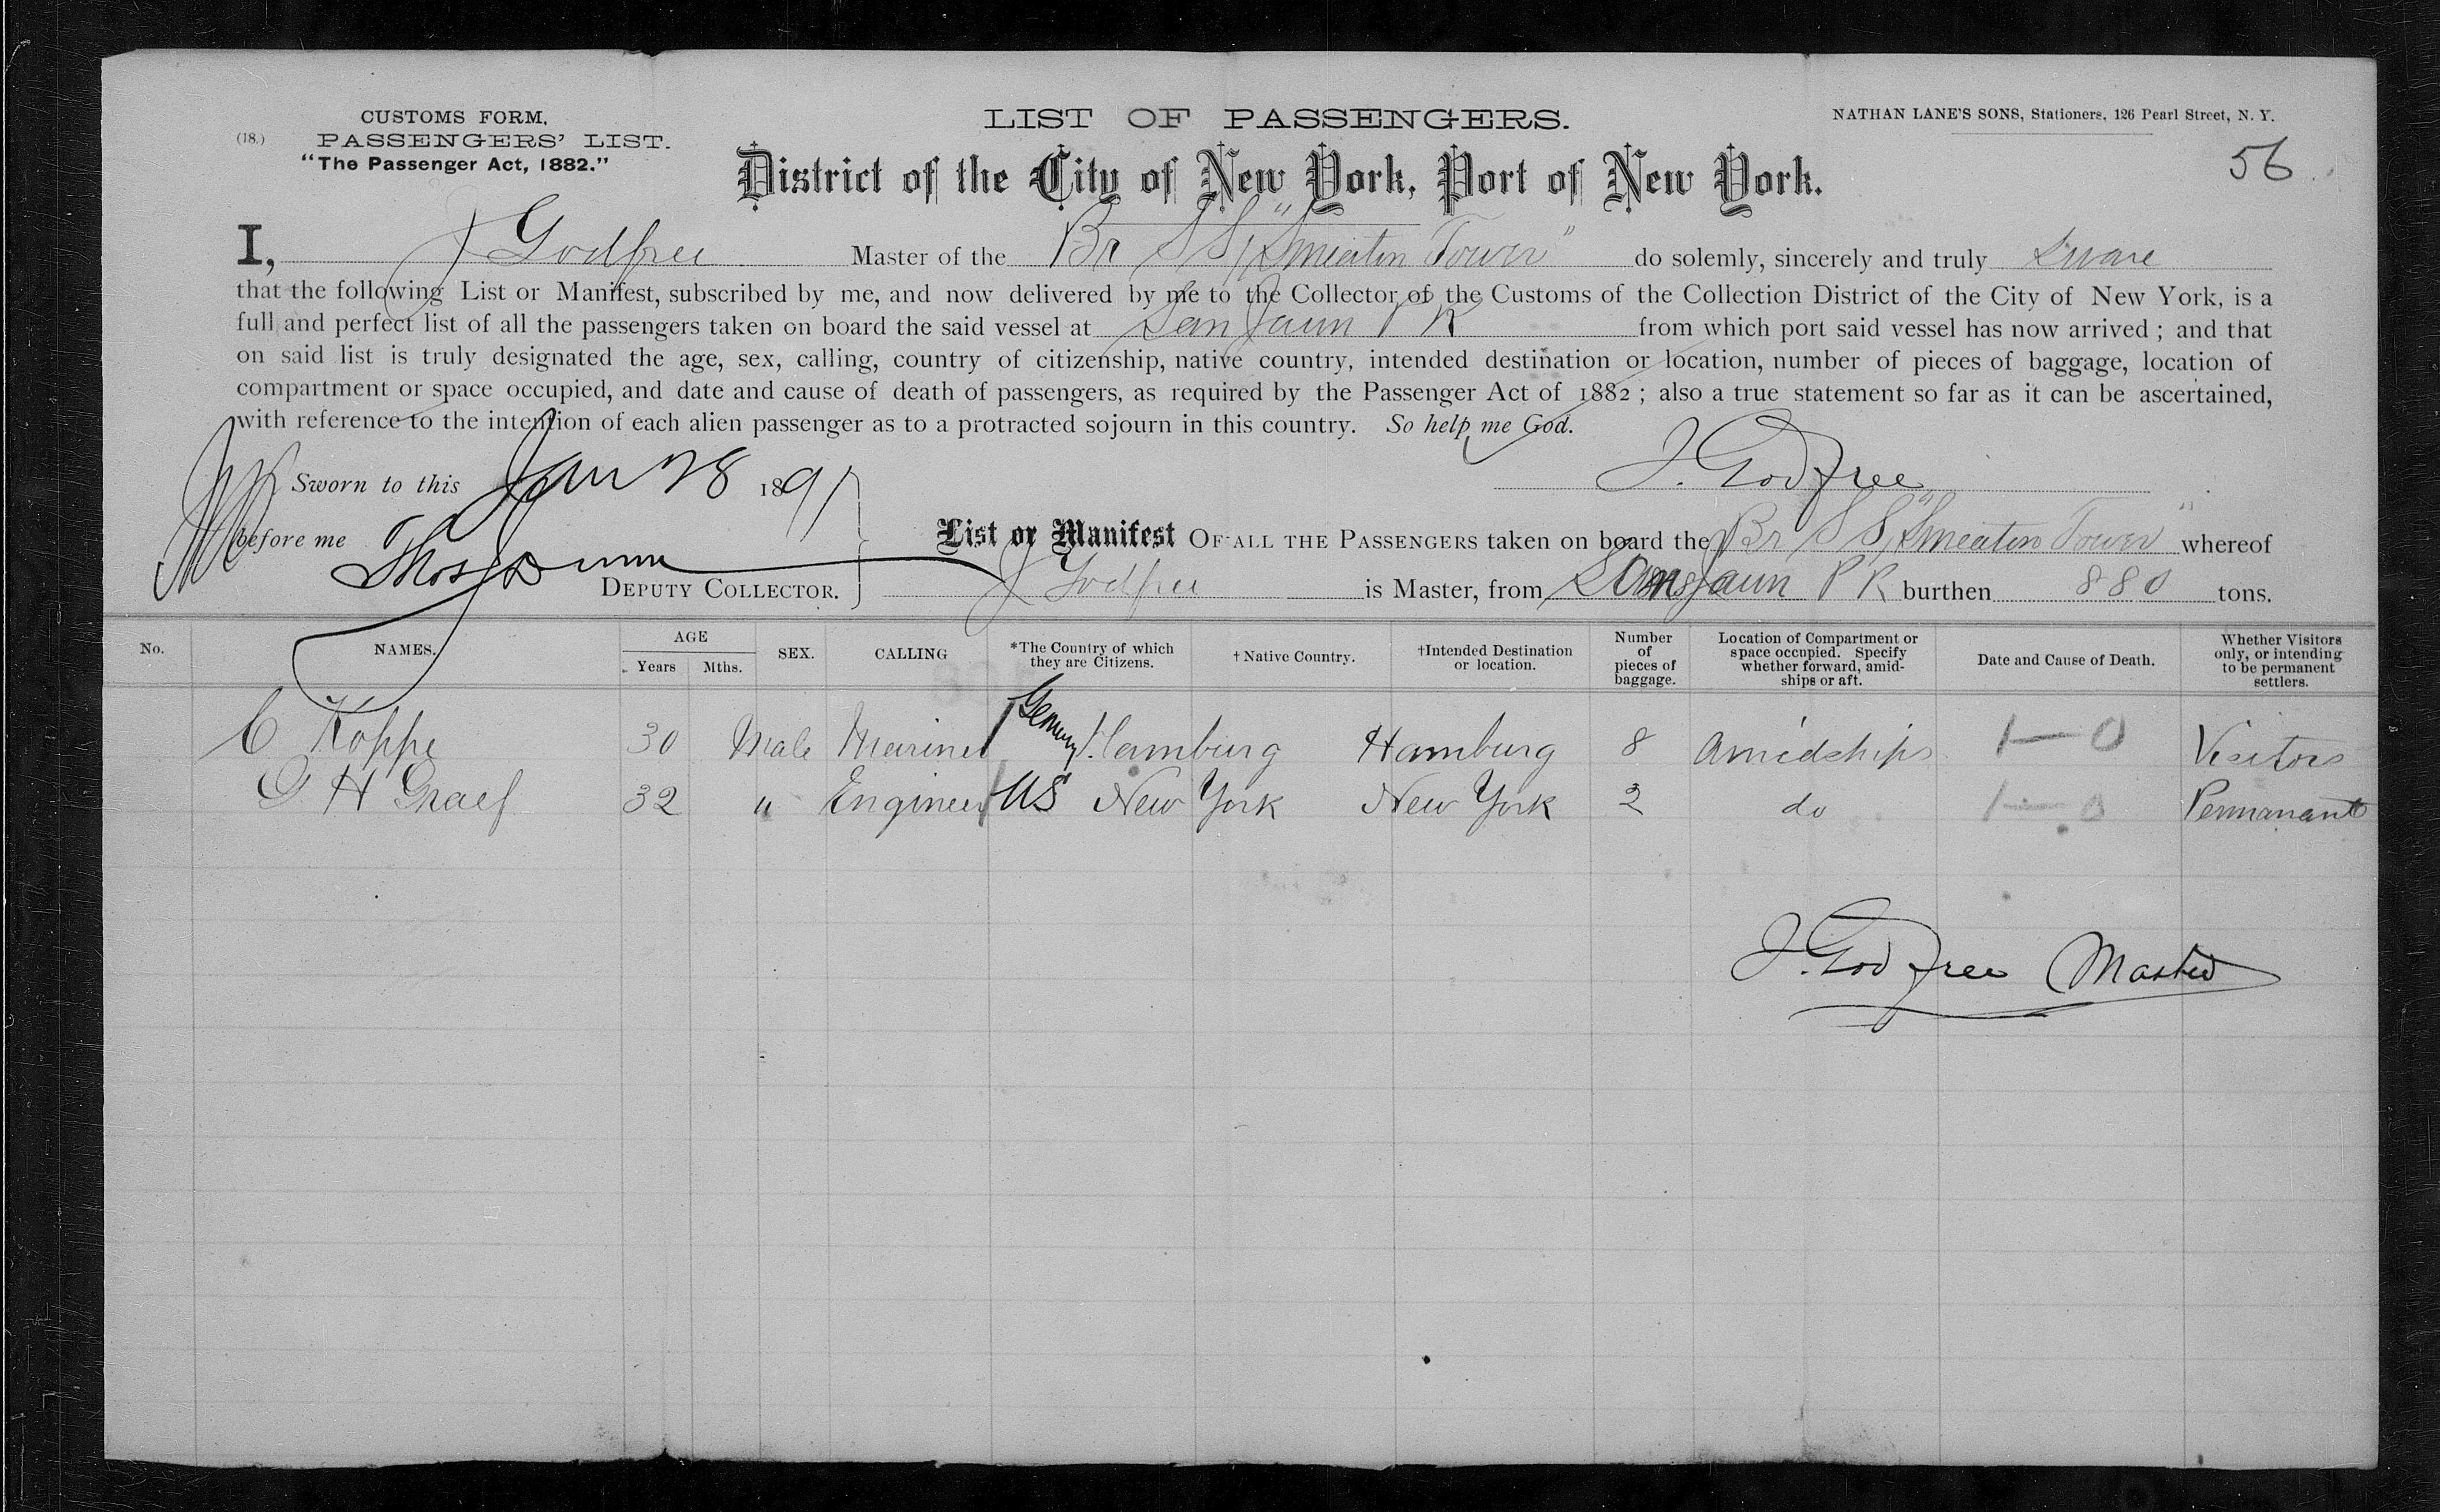 CUSTOMS FORM,
(18.) PASSENGERS' LIST.
"The Passenger Act, 1882."
LIST OF PASSENGERS.
NATHAN LANE'S SONS, Stationers, 126 Pearl Street, N. Y.
56
District of the City of New York, Port of New York.
I, J Godfree Master of the Br S S "Smeaton Tower" do solemly, sincerely and truly sware
that the following List or Manifest, subscribed by me, and now delivered by me to the Collector of the Customs of the Collection District of the City of New York, is a
full and perfect list of all the passengers taken on board the said vessel at San Jaun P R from which port said vessel has now arrived ; and that
on said list is truly designated the age, sex, calling, country of citizenship, native country, intended destination or location, number of pieces of baggage, location of
compartment or space occupied, and date and cause of death of passengers, as required by the Passenger Act of 1882 ; also a true statement so far as it can be ascertained,
with reference to the intention of each alien passenger as to a protracted sojourn in this country. So help me God.
Sworn to this Jan 28 1891
J. Godfree
before me Thos Dunn
DEPUTY COLLECTOR.
List or Manifest OF ALL THE PASSENGERS taken on board the Br S S "Smeaton Tower" whereof
J Godfree is Master, from San Jaun P R burthen 880 tons.
No. NAMES. AGE Years Mths. SEX. CALLING *The Country of which they are Citizens. †Native Country. †Intended Destination or location. Number of pieces of baggage. Location of Compartment or space occupied. Specify whether forward, amid-ships or aft. Date and Cause of Death. Whether Visitors only, or intending to be permanent settlers.
C Koppe 30 Male Mariner Germany Hamburg Hamburg 8 Amidships 1—0 Visitors
G H Graef 32 " Engineer US New York New York 2 do 1—0 Permanant
J. Godfree Master